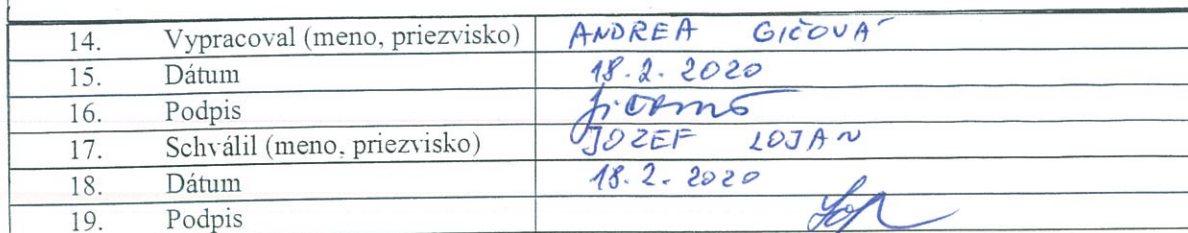 14. Vypracoval (meno, priezvisko) ANDREA GIČOVÁ
15. Dátum 18.2.2020
16. Podpis
17. Schválil (meno, priezvisko) JOZEF LOJAN
18. Dátum 18.2.2020
19. Podpis